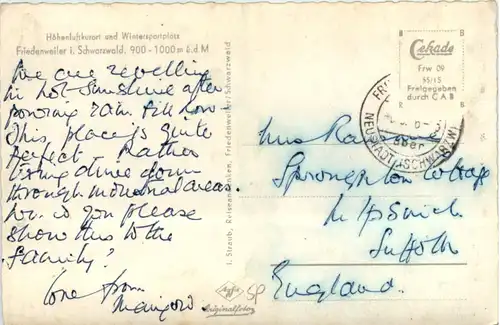 Höhenluftkurort und Wintersportplatz
Friedenweiler i. Schwarzwald. 900 - 1000 m ü. d. M
We are revelling
in hot sunshine after
pouring rain till now
This place is quite
perfect - Rather
tiring drive down
through industrial areas.
you please
show this to the
Family?
Love from
I. Straub, Friedenweiler/Schwarzwald
Cekade
Frw 09
55/15
Freigegeben
durch C A B
R
B
R
B
NEUSTADT (SCHWARZW)
über
Cottage
Ipswich
Suffolk
England
Agfa
Originalfoto
SP